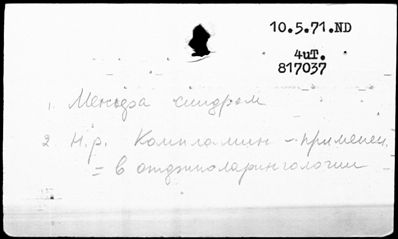 10.5.71.ND
4иТ.
817037
1. Меньера синдром
2 н.р. Компламин – примен.
= в отжоларингологии